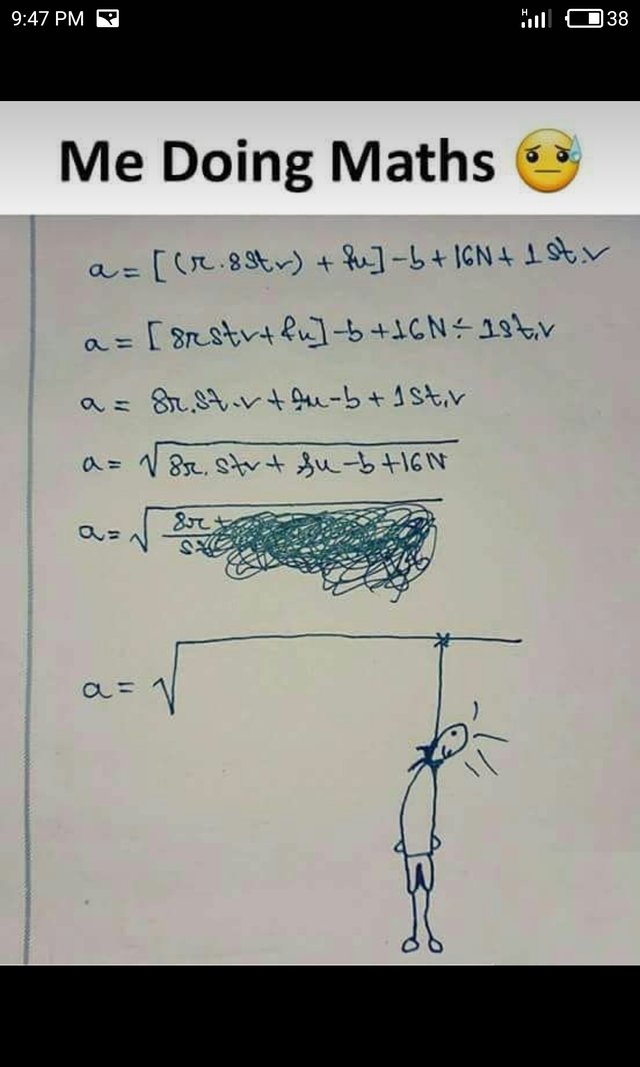 9:47 PM H 38
Me Doing Maths
a = [(r.8St.v) + fu] - b + 16N + 1 St.v
a = [8r Stv + fu] - b + 16N ÷ 1St.v
a = 8r.St.v + fu - b + 1St.v
a = √8r.Stv + fu - b + 16N
a = √8r +
a = √